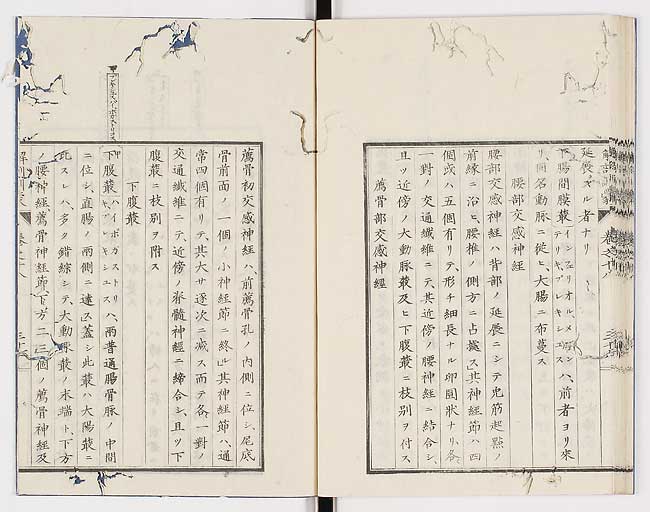 延展スル者ナリ
下腸間膜叢インフェリオルメセンテリキプレキシユスハ、前者ヨリ來
リ、同名動脉ニ從ヒ、大腸ニ布蔓ス
腰部交感神經
腰部交感神經ハ背部ノ延展ニシテ
前縁ニ沿ヒ、腰椎ノ側方ニ占據ス其神經節ハ四
個或ハ五個有リテ、形チ細長ナル卵圓狀ナリ、各
一對ノ交通纖維ニテ、其近傍ノ腰神經ニ結合シ、
且ツ近傍ノ大動脉叢及ヒ下腹叢ニ枝別ヲ付ス
薦骨部交感神經
薦骨初交感神經ハ、前薦骨孔ノ内側ニ位シ、尾底
骨前面ノ一個ノ小神經節ニ終ル其神經節ハ、通
常四個有リテ、其大サ逐次ニ減ス而テ各一對ノ
交通纖維ニテ、近傍ノ脊髓神經ニ締合シ、且ツ下
腹叢ニ枝別ヲ附ス
下腹叢
下腹叢ハイポガストリキプレキシユスハ、兩普通腸骨脉ノ中間
ニ位シ、直腸ノ兩側ニ達ス蓋シ此叢ハ大陽叢ニ
比スレハ、多タ錯綜シテ、大動脉叢ノ末端ト、下方
ノ腰神經薦骨神經節、下方二三個ノ薦骨神經及